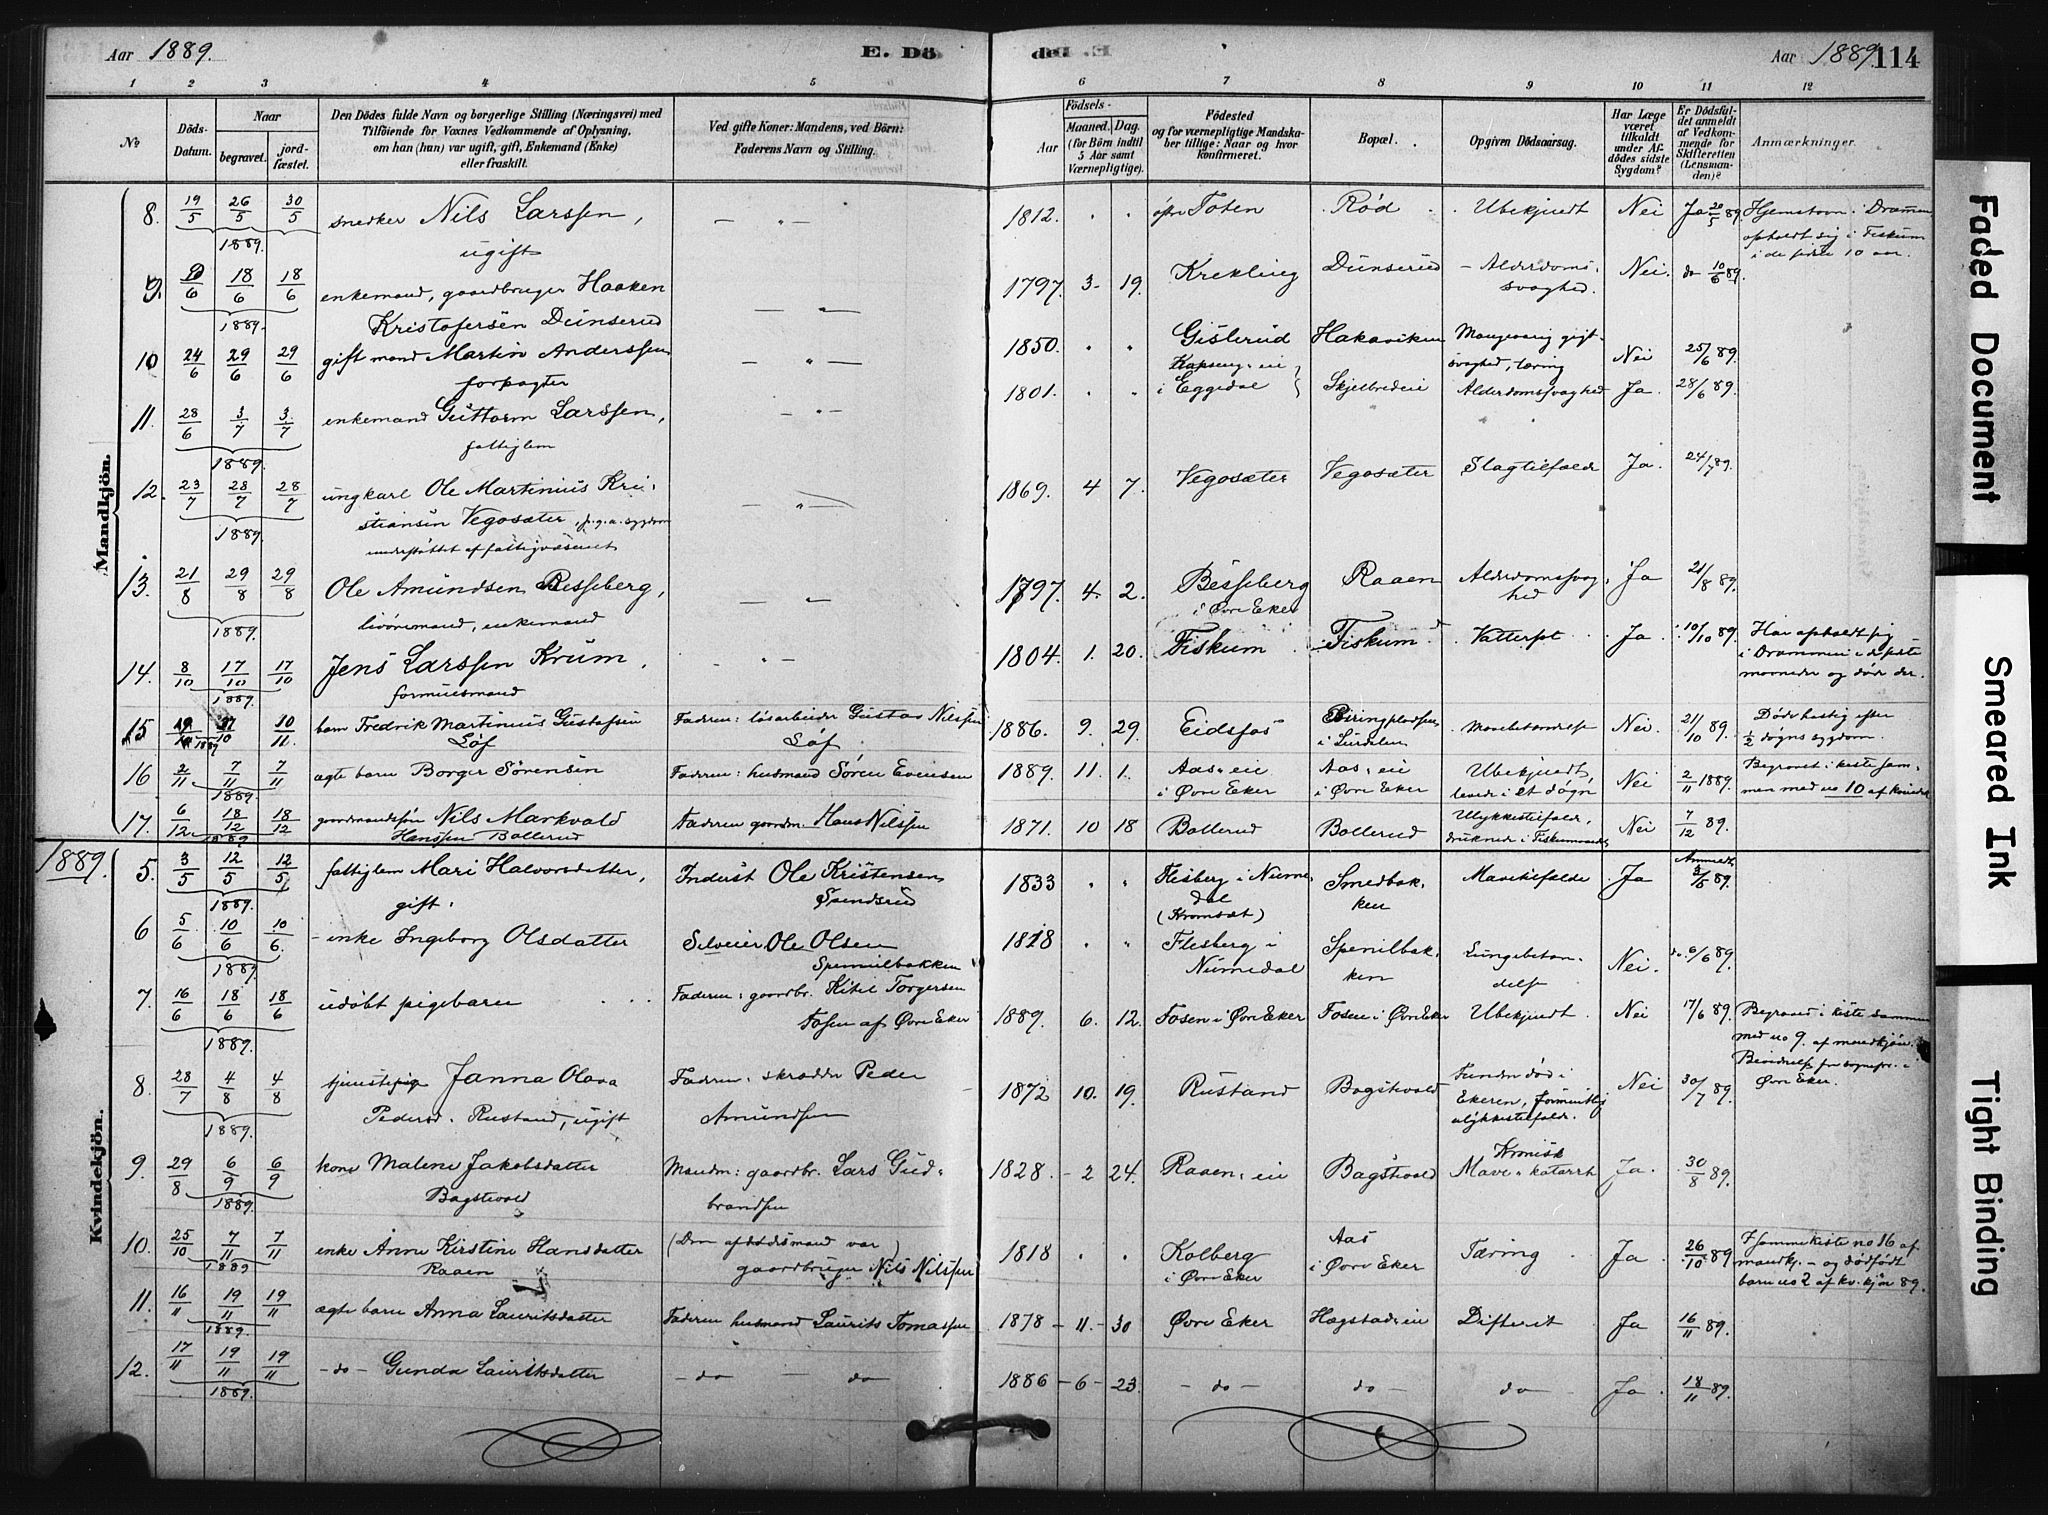 Aar 1889.
E. Dö
de.
Aar 1889. 114
1 2 3 4 5 6 7 8 9 10 11 12
No
Döds-Datum.
Naar
begravet.
jord-fæstet.
Den Dödes fulde Navn og borgerlige Stilling (Næringsvei) med
Tilföiende for Voxnes Vedkommende af Oplysning,
om han (hun) var ugift, gift, Enkemand (Enke)
eller fraskilt.
Ved gifte Koner: Mandens, ved Börn:
Faderens Navn og Stilling.
Födsels-
Aar
Maaned. Dag.
(for Börn indtil
5 Aar samt
Værnepligtige).
Födested
og for værnepligtige Mandska-
ber tillige: Naar og hvor
konfirmeret.
Bopæl.
Opgiven Dödsaarsag.
Har Læge
været
tilkaldt
under Af-
dödes sidste
Sygdom?
Er Dödsfal-
det anmeldt
af Vedkom-
mende for
Skifteretten
(Lensman-
den)?
Anmærkninger.
Mandkjön.
8. 19/5 26/5 30/5 snedker Nils Larssen, — " — 1812. " " öfre Toten Röd Ubekjendt Nei Ja 20/5 89. Hjemstavn i Drammen
1889. ugift opholdt sig i Fiskum
i de sidste 10 aar.
9. 6 18/6 18/6 enkemand, gaardbruger Haaken — " — 1797. 3 19. Krekling Dunserud Alderdoms- Nei. do 10/6 89.
1889. Kristofersen Dunserud svaghed.
10 24/6 29/6 29/6 gift mand Martin Anderssen — " — 1850. " " Gislerud Hakaviken Nei 25/6 89.
forpagter svaghed, tæring
11. 28/6 3/7 3/7 enkemand Guttorm Larssen, — " — 1801. " " i Eggedal Skjelbredeie Alderdomssvaghed Ja. 28/6 89.
1889. fattiglem
12. 23/7 28/7 28/7 ungkarl Ole Martinius Kri- — " — 1869. 4 7. Vegosæter Vegosæter Slagtilfælde Ja. 24/7 89.
1889. stiansen Vegosæter, p.g.a. sygdom
understöttet af fattigvæsenet
13. 21/8 29/8 29/8 Ole Amundsen Besseberg, — " — 1797. 4. 2. Besseberg Raaen Alderdomssvag- Ja 21/8 89.
1889. enkemand i Øvre Eker hed
14. 8/10 17/10 17/10 Jens Larssen Krum, — " — 1804. 1. 20. Fiskum Fiskum Vattersot Ja. 10/10 89. Har opholdt sig
1889. formuesmand i Drammen i de sidste
maaneder og döde der.
15 10 10/11 barn Fredrik Martinius Gustafsen Faderen: lösarbeider Gustav Nilssen 1886. 9. 29. Eidsfos Nei. 21/10 89. Döde hastig efter
1889 Löf Löf. i Lindalen 1/2 dögns sygdom.
16 2/11 7/11 7/11 ægte barn Borger Sörensen Faderen: husmand Sören Evensen 1889. 11. 1. Aas-eie Aas-eie Ubekjendt, Nei 2/11 1889. Begravet i kiste sam-
1889. i Øvre Eker i Øvre Eker levede i et dögn men med no 10 af kvindek.
17. 6/12 18/12 18/12 gaardmandssön Nils Markvald Faderen gaardm. Hans Nilssen 1871. 10 18 Bollerud Bollerud Ulykkestilfælde, Nei 7/12 89.
1889 Hanssen Bollerud druknede i Fiskumvandet
1889.
Kvindekjön.
5. 3/5 12/5 12/5 fattiglem Mari Halvorsdatter, Inderst Ole Kristensen 1833 " " Flesberg i Nume- Smedbak- Mavetilfælde Ja Anmeldt 3/5 89.
1889. gift. dal ken
6 5/6 10/6 10/6. enke Ingeborg Olsdatter Selveier Ole Olsen 1818 " " Flesberg i Spenilbak- Lungebetæn- Nei. do. 6/6 89.
1889. Spennilbakken Numedal ken delse
7. 16/6 18/6 18/6 udöbt pigebarn Faderen: gaardbr. Kitil Torgersen 1889. 6. 12. Fosen i Øvre Eker Fosen i Øvre Eker Ubekjendt. Nei 17/6 89. Begraved i kiste sammen
1889. Fosen af Øvre Eker med no 9. af mandkjön.
Øvre Eker.
8. 28/7 4/8 4/8 tjenestepige Janna Olava Faderen: skrædder Peder 1872 10. 19. Rustand Bagstevold Funden död i Nei 30/7 89.
1889. Pedersd. Rustand, ugift Amundsen Ekeren, formentlig
ulykkestilfælde.
9. 29/8 6/9 6/9 kone Malene Jakobsdatter Manden: gaardbr. Lars Gud- 1828. 2 24. Raaen-eie Bagstevold Kronisk Ja. 30/8 89.
1889. Bagstevold brandsen Mave-katarrh
10. 25/10 7/11 7/11 enke Anne Kirstine Hansdatter (Den afdödes mand var) 1818 " " Kolberg Aas Tæring Ja. 26/10 89 I samme kiste no 16 af
1889 Raaen gaardbruger Nils Nilssen i Øvre Eker i Øvre Eker mandkj. — og dödfödt
barn no 2 af kv.kjön 89.
11. 16/11 19/11 19/11 ægte barn Anna Lauritsdatter Faderen husmand Laurits Tomassen 1878 - 11. - 30 Øvre Eker Hagstadeie Difterit Ja 16/11 89.
1889.
12. 17/11 19/11 19/11 — do — Gunda Lauritsdatter — do — do 1886 - 6 - 23. — do — do — do Ja 18/11 89.
1889.
Faded Document
Smeared Ink
Tight Binding